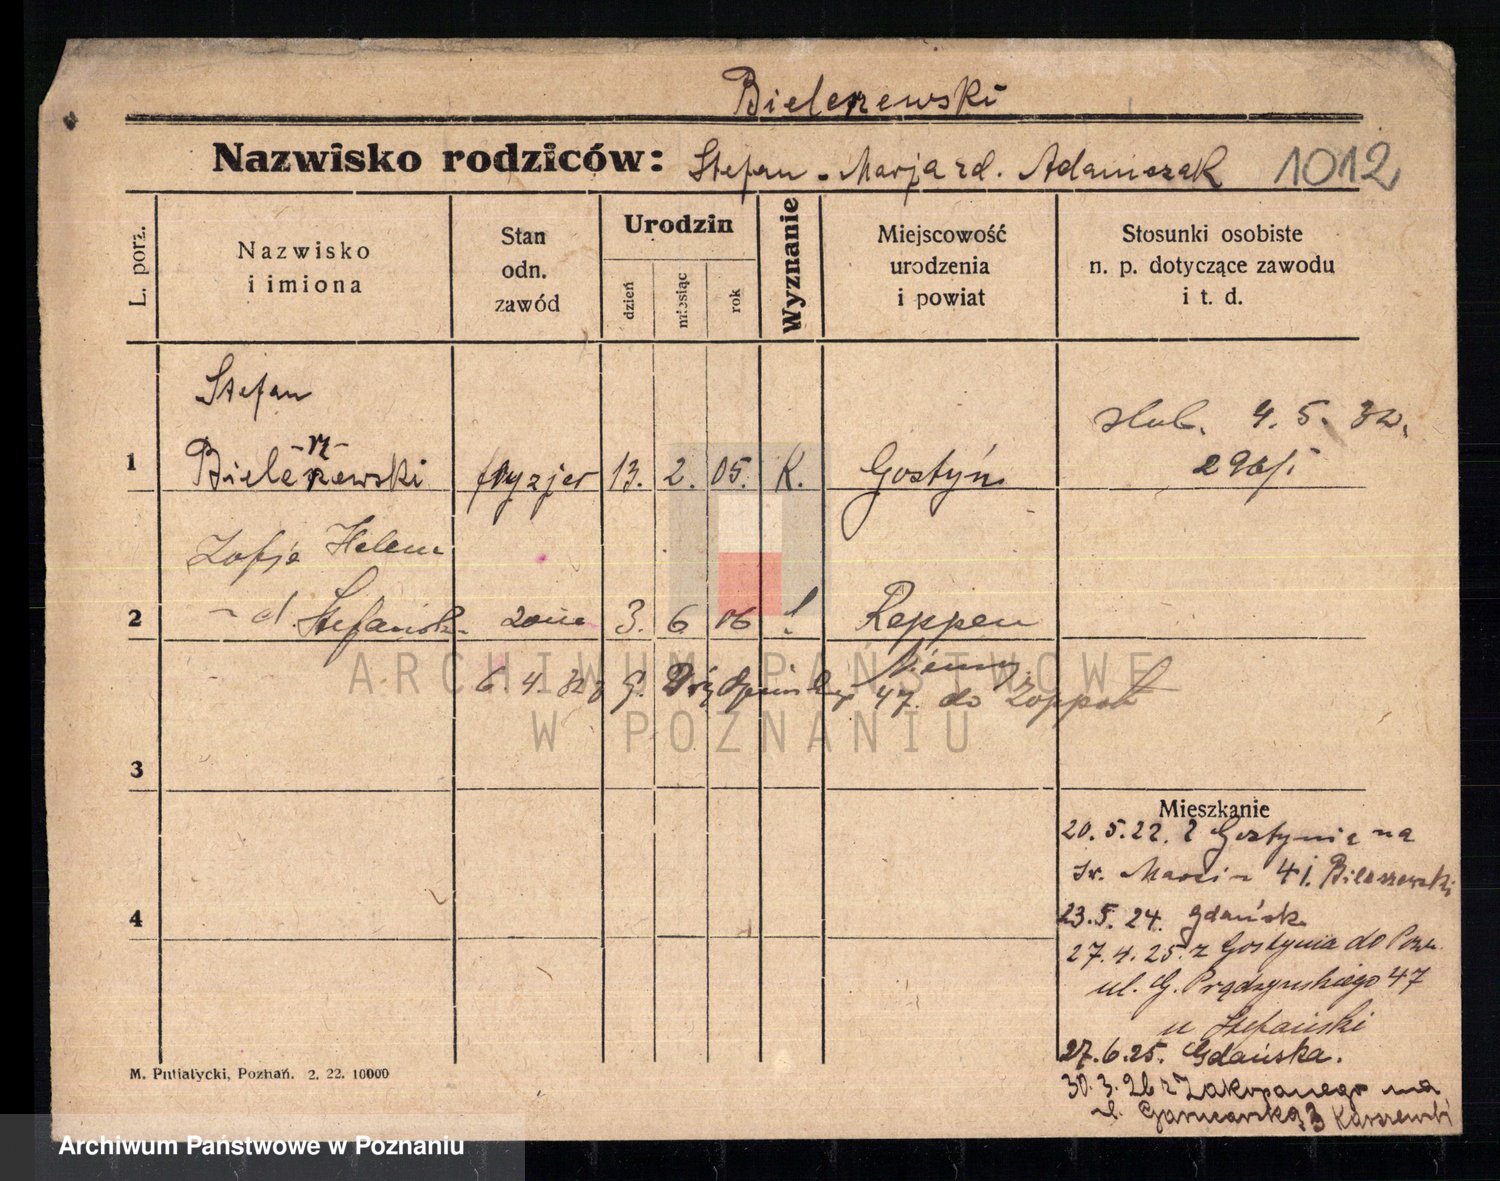 Bielerzewski
Nazwisko rodziców: Stefan - Marja zd. Adamczak 1012
L. porz.
Nazwisko
i imiona
Stan
odn.
zawód
Urodzin
dzień
miesiąc
rok
Wyznanie
Miejscowość
urodzenia
i powiat
Stosunki osobiste
n. p. dotyczące zawodu
i t. d.
1
Stefan
- rz -
Bielerzewski fryzjer 13. 2. 05. K. Gostyń
ślub. 4. 5. 32.
296/I
2
Zofja Helena
d. Stefańsk. żona 3. 6 06 Reppen
Niemcy
6. 4. 32 z G. Prądzyńskiego 47. do Zoppot
3
4
Mieszkanie
20. 5. 22. z Gostynia na
Św. Marcin 41. Bileszewski
23. 5. 24. Gdańsk
27. 4. 25. z Gostynia do Pozn.
ul. G. Prądzyńskiego 47
u Stefański
27. 6. 25. Gdańska.
30. 3. 26 z Zakopanego na
ul. Garncarską 3 Karszewski
M. Putiatycki, Poznań. 2. 22. 10000
ARCHIWUM PAŃSTWOWE
W POZNANIU
Archiwum Państwowe w Poznaniu